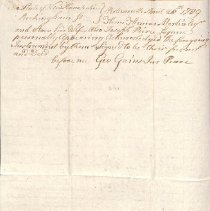 State of New Hampshire Portsmouth 26th 1789
Rockingham Ss Then Thomas Martin Esqr
and his Wife Also Joseph Peirce Esquire
personally Appearing Acknowledged the foregoing
Instrument by them Signed to be their free Act
and Deed
before me Geo Gains Jus Peace